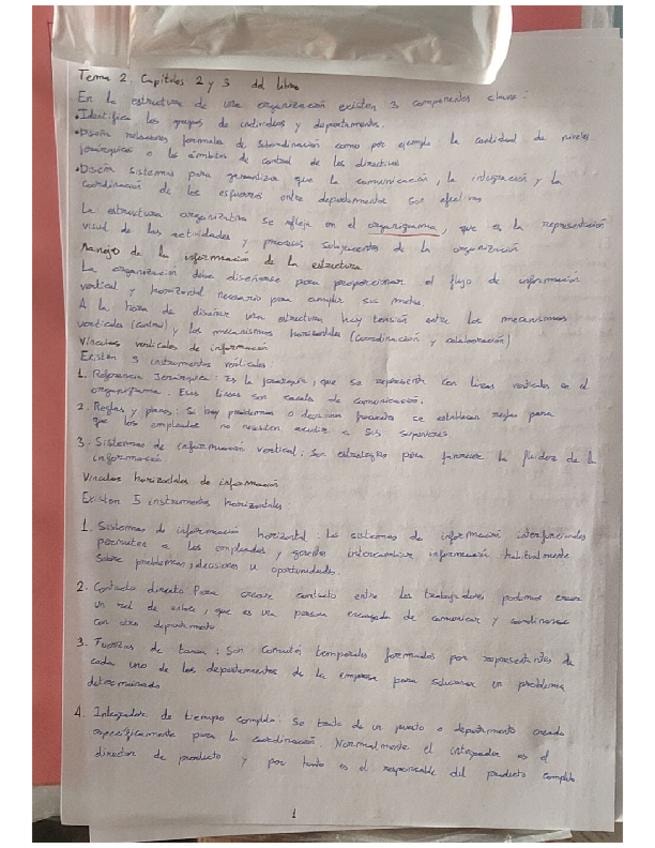 Tema 2. Capítulos 2 y 3 del libro
En la estructura de una organización existen 3 componentes claves:
•Identifica los grupos de individuos y departamentos.
•Diseña relaciones formales de subordinación como por ejemplo la cantidad de niveles
jerárquicos o los ámbitos de control de los directivos
•Diseña sistemas para garantizar que la comunicación, la integración y la
coordinación de los esfuerzos entre departamentos son efectivos
La estructura organizativa se refleja en el organigrama, que es la representación
visual de las actividades y procesos subyacentes de la organización
Manejo de la información de la estructura
La organización debe diseñarse para proporcionar el flujo de información
vertical y horizontal necesario para cumplir sus metas.
A la hora de diseñar una estructura hay tensión entre los mecanismos
verticales (control) y los mecanismos horizontales (coordinación y colaboración)
Vínculos verticales de información
Existen 3 instrumentos verticales:
1. Referencia Jerárquica: Es la jerarquía, que se representa con líneas verticales en el
organigrama. Esas líneas son canales de comunicación.
2. Reglas y planes: Si hay problemas o decisiones frecuentes se establecen reglas para
que los empleados no necesiten acudir a sus superiores
3. Sistemas de información vertical: Son estrategias para favorecer la fluidez de la
información
Vínculos horizontales de información
Existen 5 instrumentos horizontales
1. Sistemas de información horizontal: los sistemas de información interfuncionales
permiten a los empleados y gerentes intercambiar información habitualmente
sobre problemas, decisiones u oportunidades.
2. Contacto directo Para crear contacto entre los trabajadores podemos crear
un rol de enlace, que es una persona encargada de comunicar y coordinarse
con otro departamento
3. Fuerzas de tarea: Son comités temporales formados por representantes de
cada uno de los departamentos de la empresa para solucionar un problema
determinado
4. Integrador de tiempo completo: Se trata de un puesto o departamento creado
específicamente para la coordinación. Normalmente el integrador es el
director de producto y por tanto es el responsable del producto completo
1